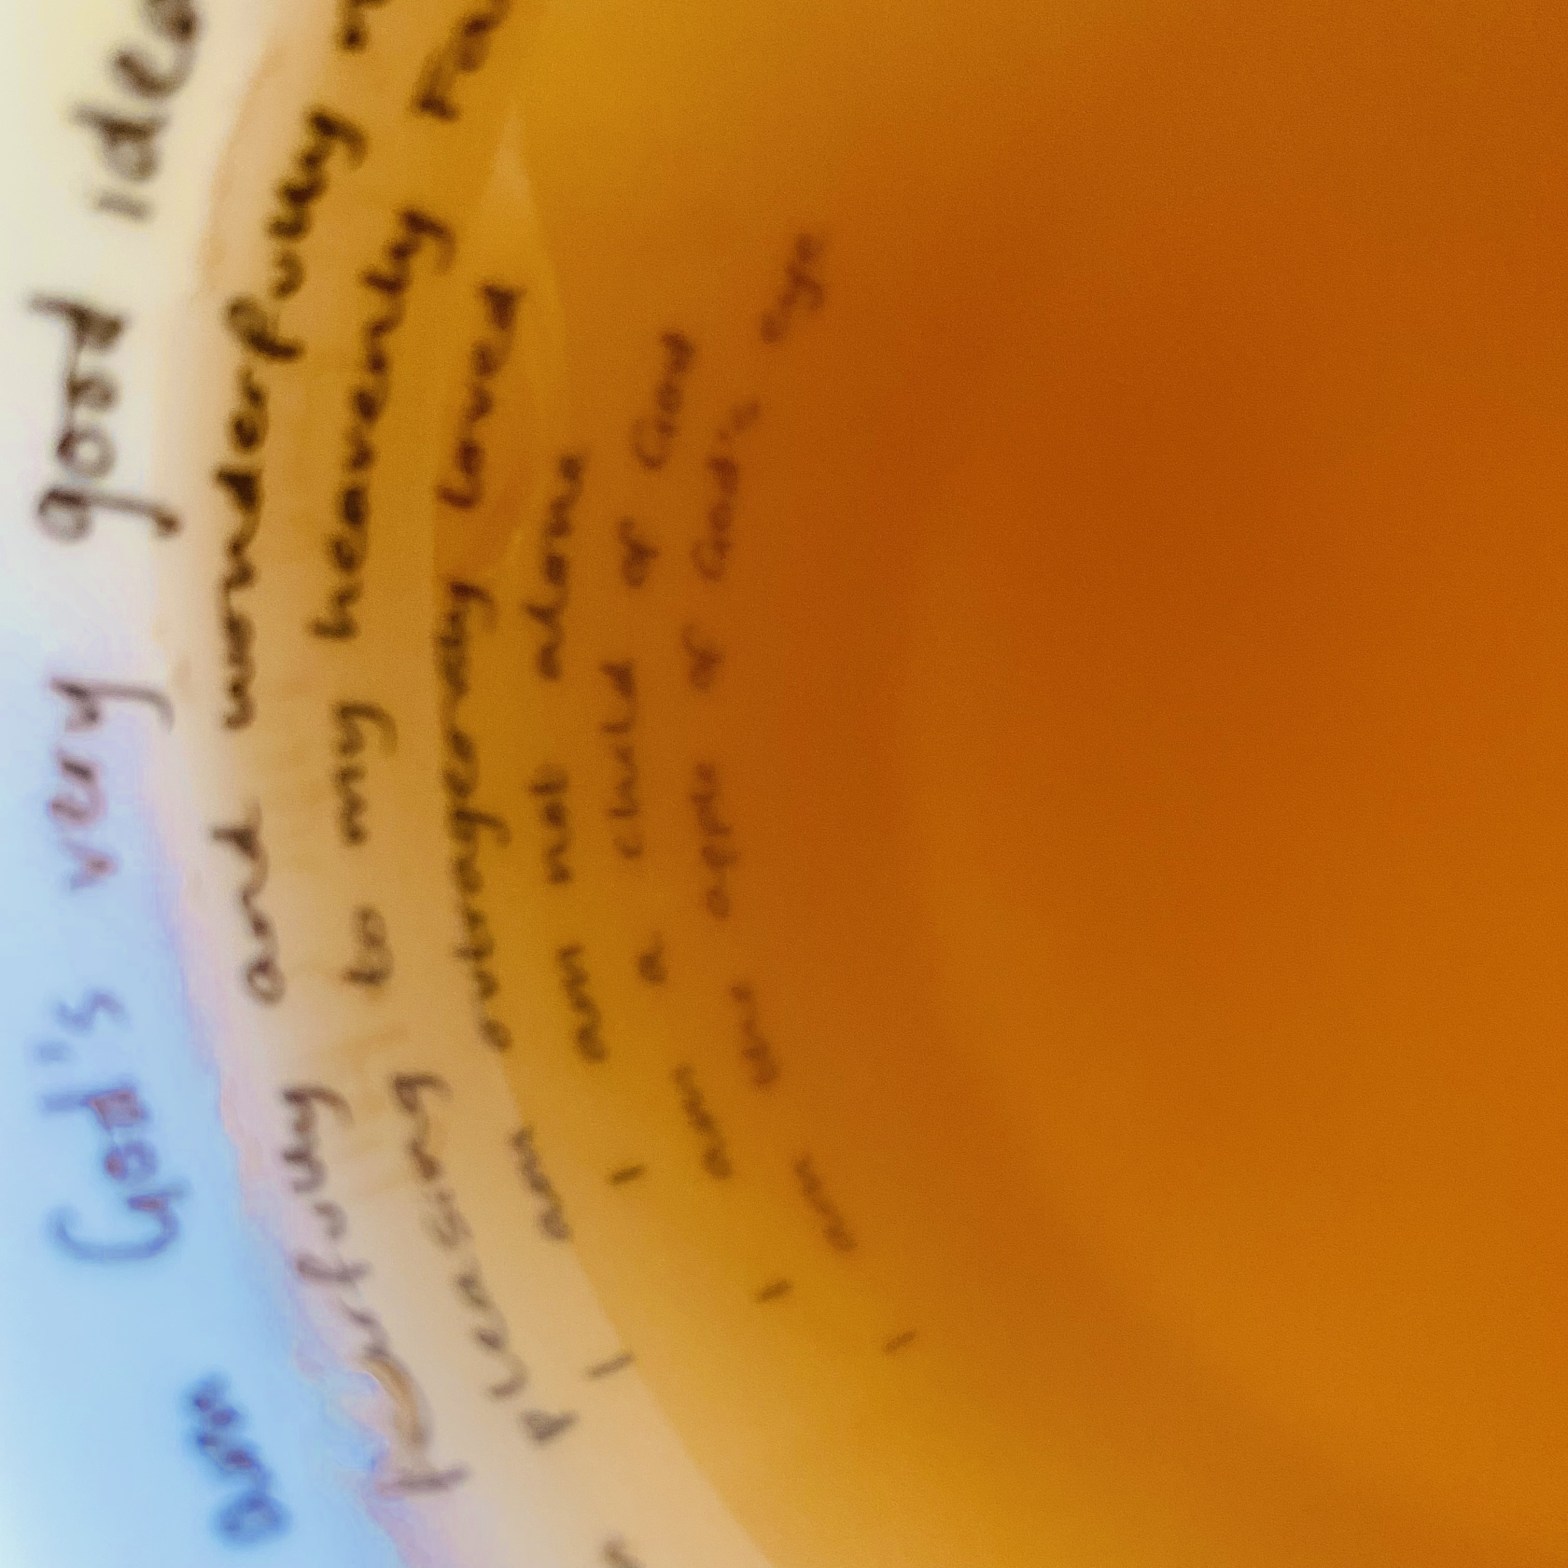 am God's very good idea
fearfully and wonderfully
pleasing to my heavenly Fa
I am outrageously loved
I am not alone
I am a child of God
I am the apple of God's eye